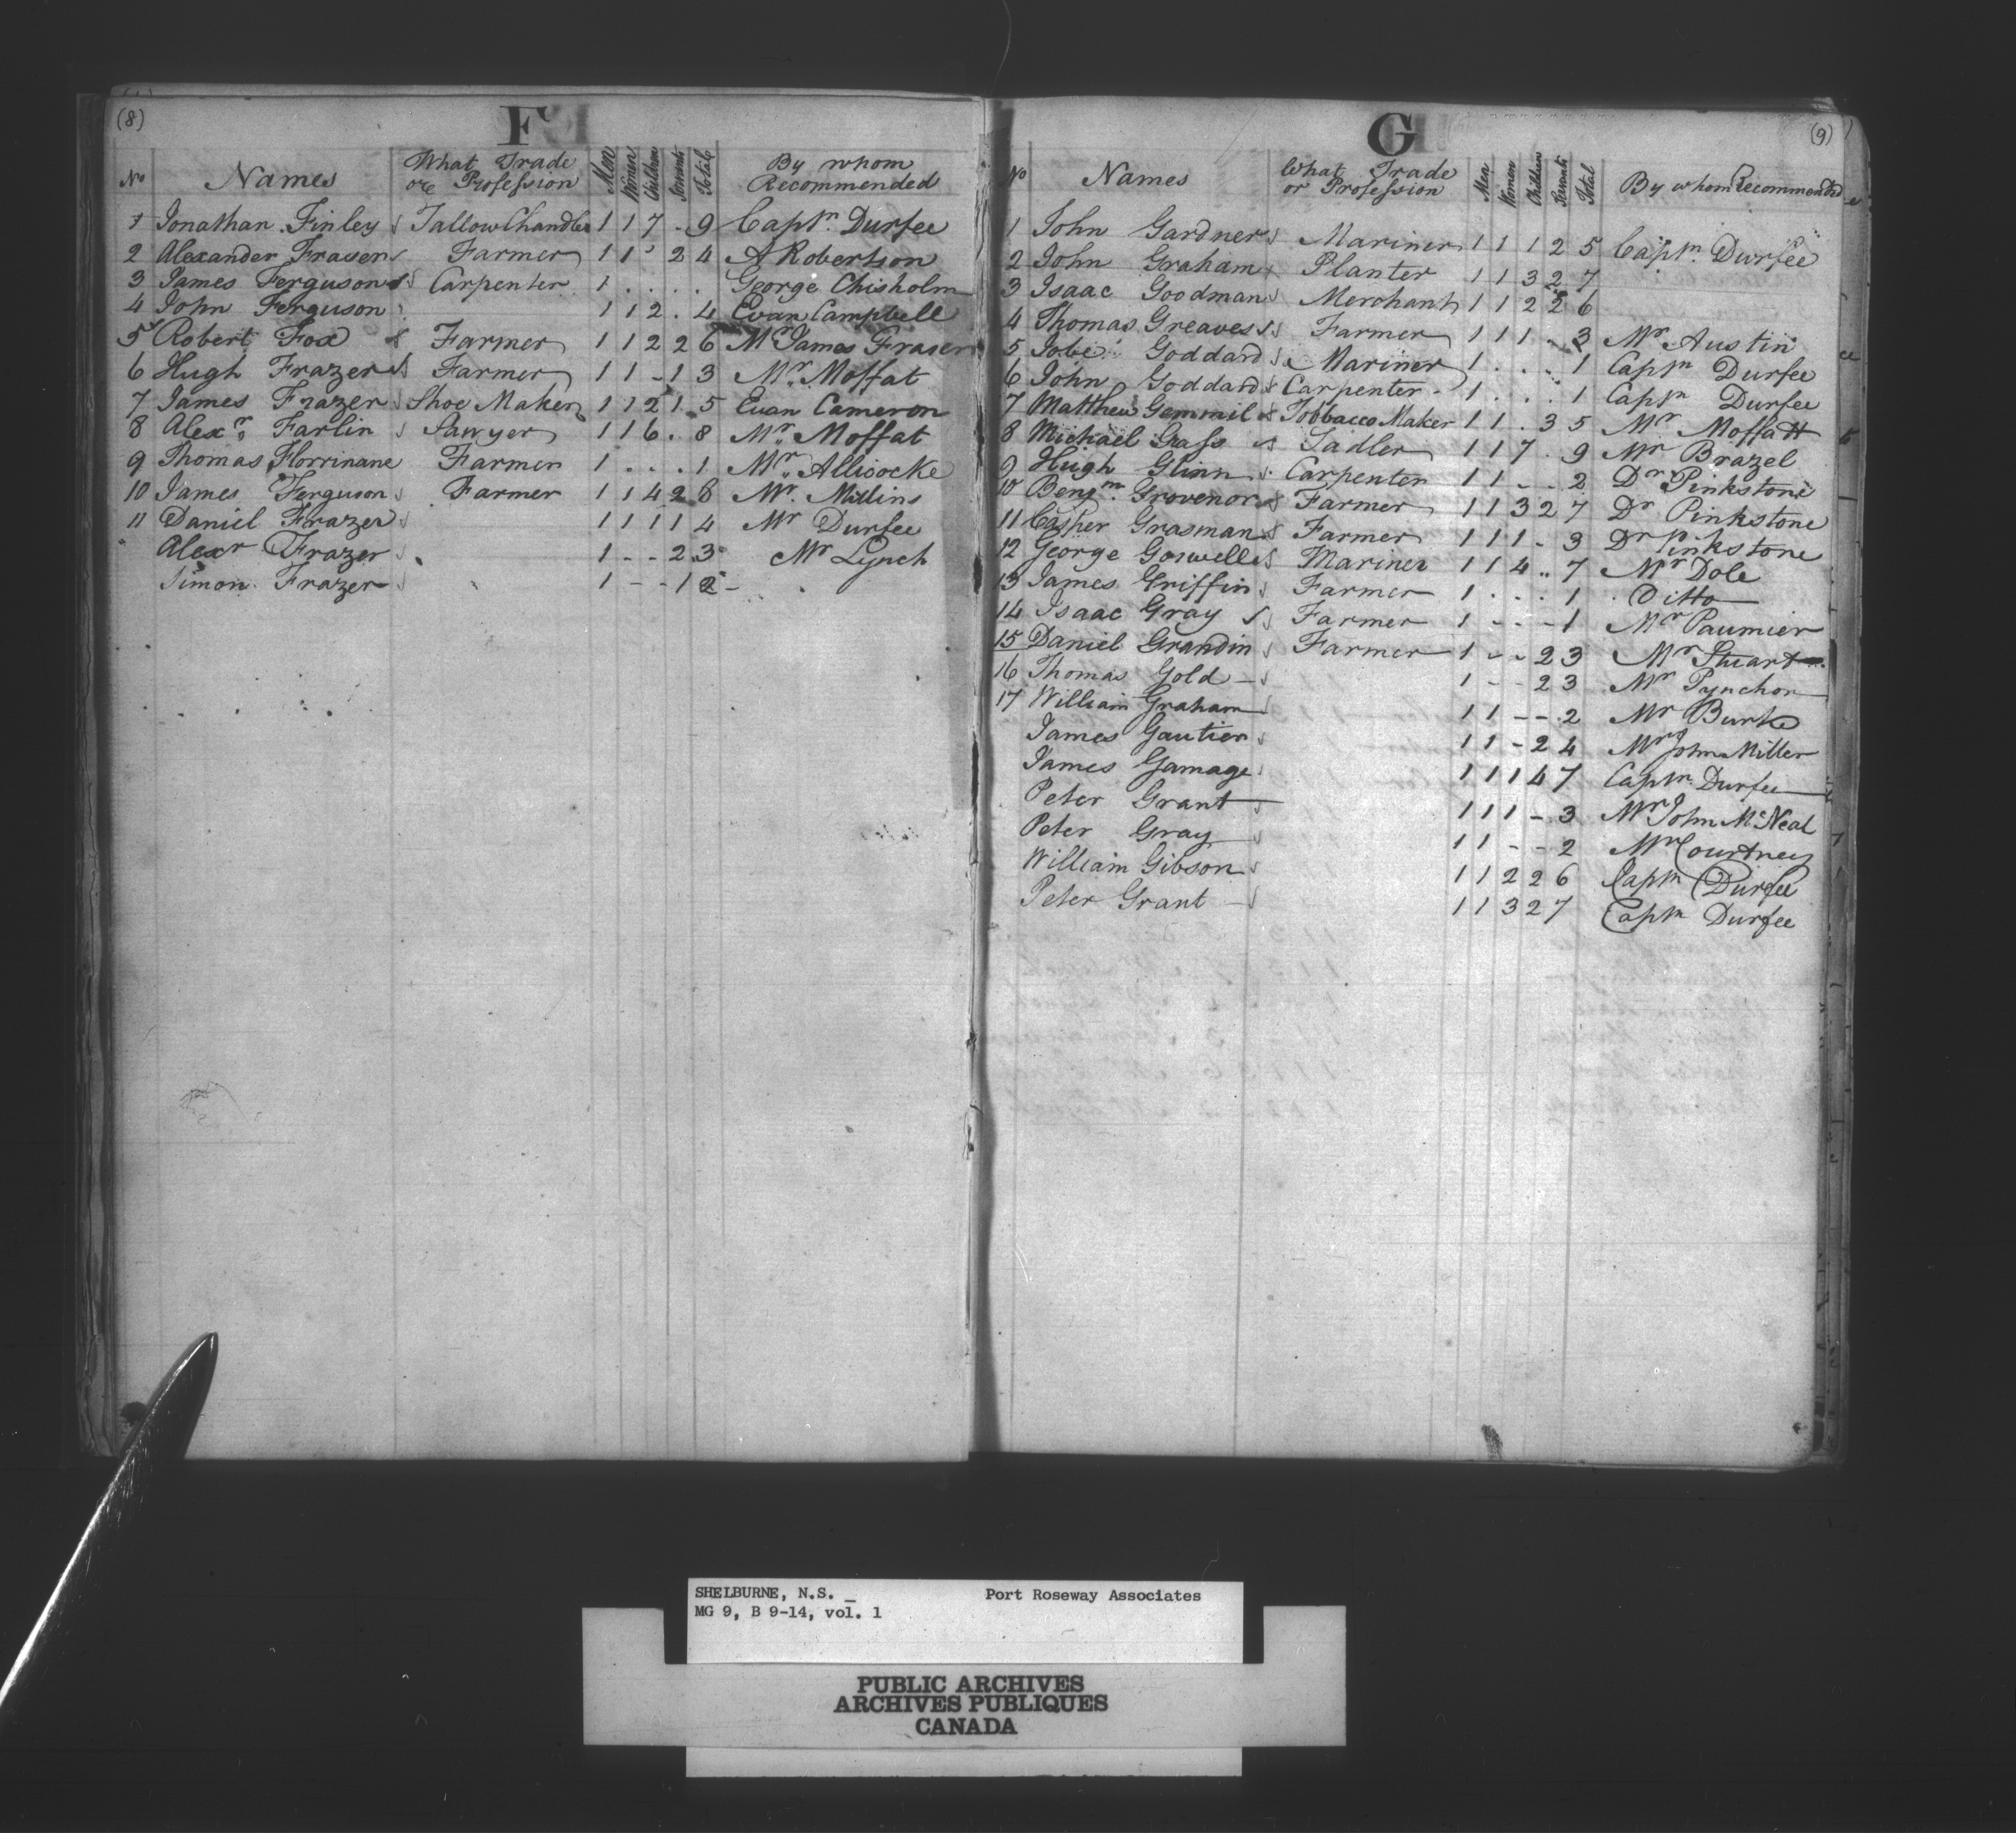 (8)
F
No Names What Trade or Profession Men Women Children Servants Total By whom Recommended
1 Jonathan Finley Tallow Chandler 1 1 7 - 9 Captn. Durfee
2 Alexander Fraser Farmer 1 1 2 4 A Robertson
3 James Ferguson Carpenter 1 . . . . George Chisholm
4 John Ferguson 1 1 2 . 4 Evan Campbell
5 Robert Fox Farmer 1 1 2 2 6 Mr James Fraser
6 Hugh Frazer Farmer 1 1 - 1 3 Mr. Moffat
7 James Frazer Shoe Maker 1 1 2 1 . 5 Evan Cameron
8 Alexr. Farlin Sawyer 1 1 6 . 8 Mr. Moffat
9 Thomas Florrinane Farmer 1 . . . 1 Mr. Allicocke
10 James Ferguson Farmer 1 1 4 2 8 Mr. Mullins
11 Daniel Frazer 1 1 1 1 4 Mr Durfee
Alexr Frazer 1 - - 2 3 Mr Lynch
Simon Frazer 1 - - 1 2 -
(9)
G
No Names What Trade or Profession Men Women Children Servants Total By whom Recommended
1 John Gardner Mariner 1 1 1 2 5 Captn. Durfee
2 John Graham Planter 1 1 3 2 7
3 Isaac Goodman Merchant 1 1 2 2 6
4 Thomas Greaves Farmer 1 1 1 - 3 Mr. Austin
5 Jobe Goddard Mariner 1 . . . 1 Captn Durfee
6 John Goddard Carpenter - 1 . . . 1 Captn Durfee
7 Matthew Gemmil Tobbacco Maker 1 1 . 3 5 Mr Moffatt
8 Michael Grass Sadler 1 1 7 . 9 Mr Brazel
9 Hugh Glinn Carpenter 1 1 - - 2 Dr Pinkstone
10 Benjn. Grovenor Farmer 1 1 3 2 7 Dr Pinkstone
11 Casper Grasman Farmer 1 1 1 - 3 Dr Pinkstone
12 George Goswell Mariner 1 1 4 .. 7 Mr Dole
13 James Griffin Farmer 1 . . . 1 Ditto
14 Isaac Gray Farmer 1 - - - 1 Mr Paumier
15 Daniel Grandin Farmer 1 - - 2 3 Mr Stuart
16 Thomas Gold 1 - - 2 3 Mr Pynchon
17 William Graham 1 1 - - 2 Mr Burke
James Gautier 1 1 - 2 4 Mr John Miller
James Gamage 1 1 1 4 7 Captn. Durfee
Peter Grant 1 1 1 - 3 Mr John McNeal
Peter Gray 1 1 - - 2 Mr Courtney
William Gibson 1 1 2 2 6 Captn Durfee
Peter Grant 1 1 3 2 7 Captn Durfee
SHELBURNE, N.S. _ Port Roseway Associates
MG 9, B 9-14, vol. 1
PUBLIC ARCHIVES
ARCHIVES PUBLIQUES
CANADA